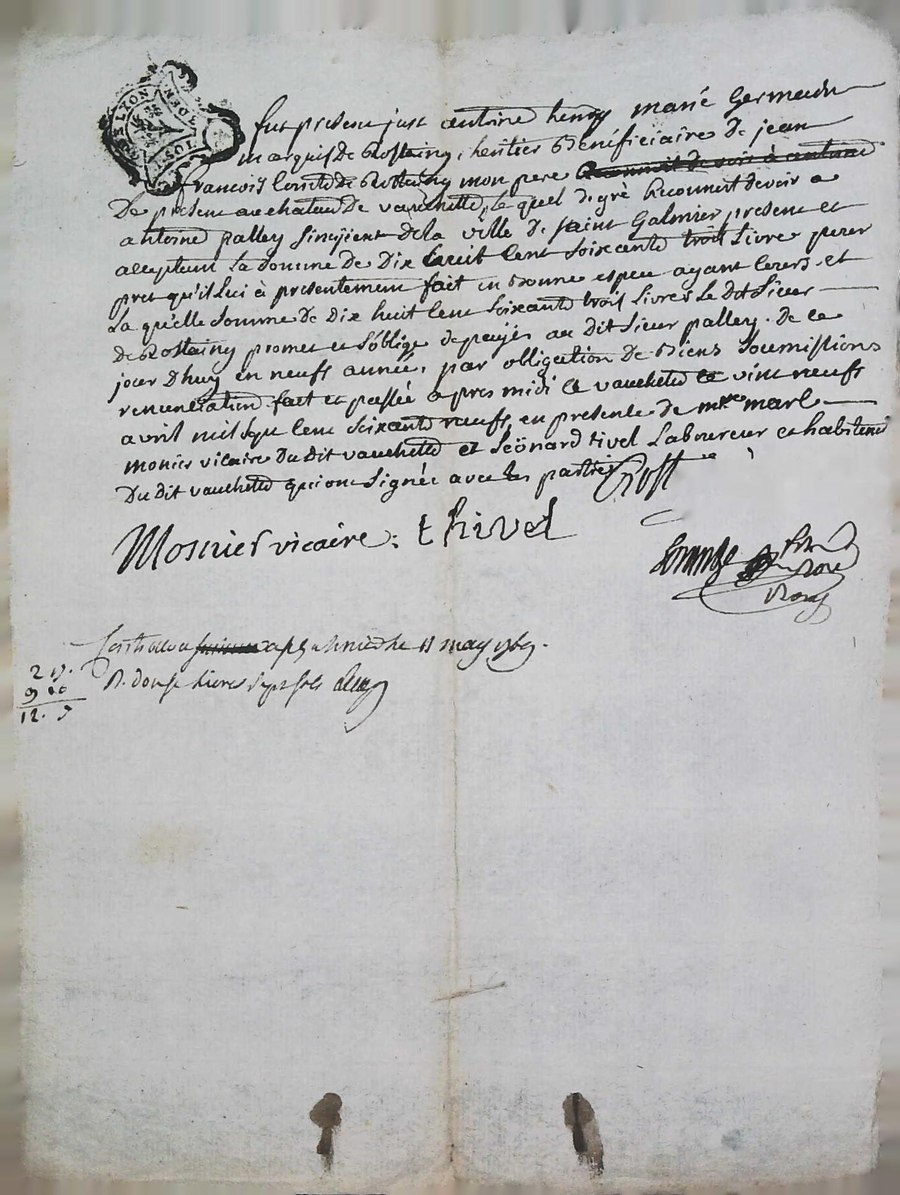 GEN. LYON
UN SOL
fut present just antoine henry marie Germain
marquis de Rostaing, heritier Bénéficiaire de jean
francois Comte de Rostaing mon pere Reconnoit devoir à antoine
De present au chateau De vauchette, le quel de grè Reconnoit devoir a
antoine palley de la ville de saint Galmier present et
acceptant la somme De Dix huit Cent soixante trois Livre pour
pret qu'il lui à presentement fait en Bonne espece ayant cours et
La quelle somme De dix huit Cent soixante trois Livres Le Dit sieur
de Rostaing promet et s'oblige de payér au dit sieur palley. de ce
jour D'huy en neufs année, par obligation De Biens soumistions
renunciation fait et passée apres midi a vauchette ce vint neufs
avril mil sept Cent soixante neufs, en presence de mre marc
monier vicaire Du dit vauchette et Leönard tivel Laboureur et habitent
Du dit vauchette qui ont signée avec les parties Rost
Mosnier vicaire: thivel
may 1769.
R. douse livres sept sols
9 10
12. 7